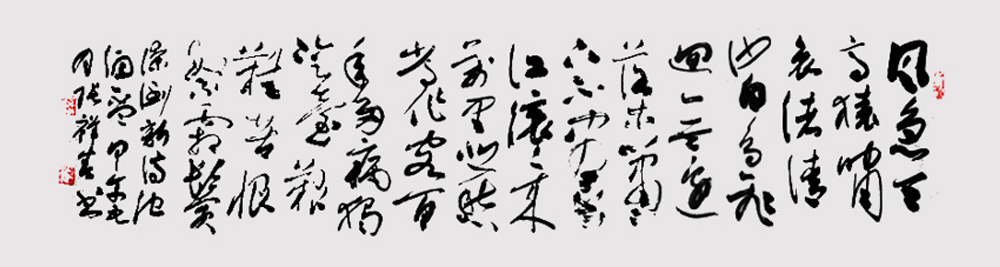 風急天
高猿嘯
哀渚清
沙白鳥飛
迴無邊
落木蕭々
下不盡長
江滾々來
萬里悲秋
常作客百
年多病獨
登臺艱
難苦恨
繁霜鬢
潦倒新停濁
酒盃甲午
月張祥書